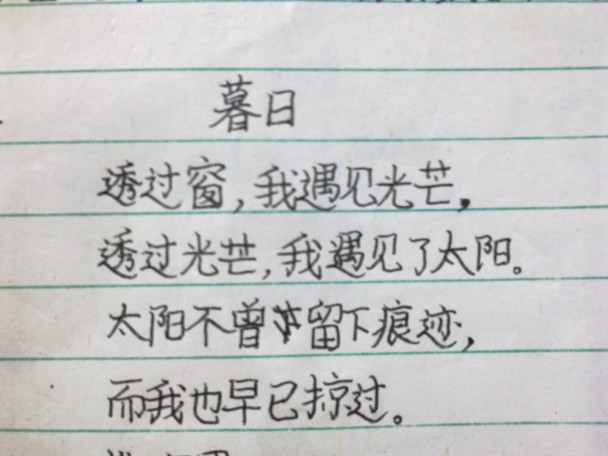 暮日
透过窗,我遇见光芒,
透过光芒,我遇见了太阳。
太阳不曾留下痕迹,
而我也早已掠过。